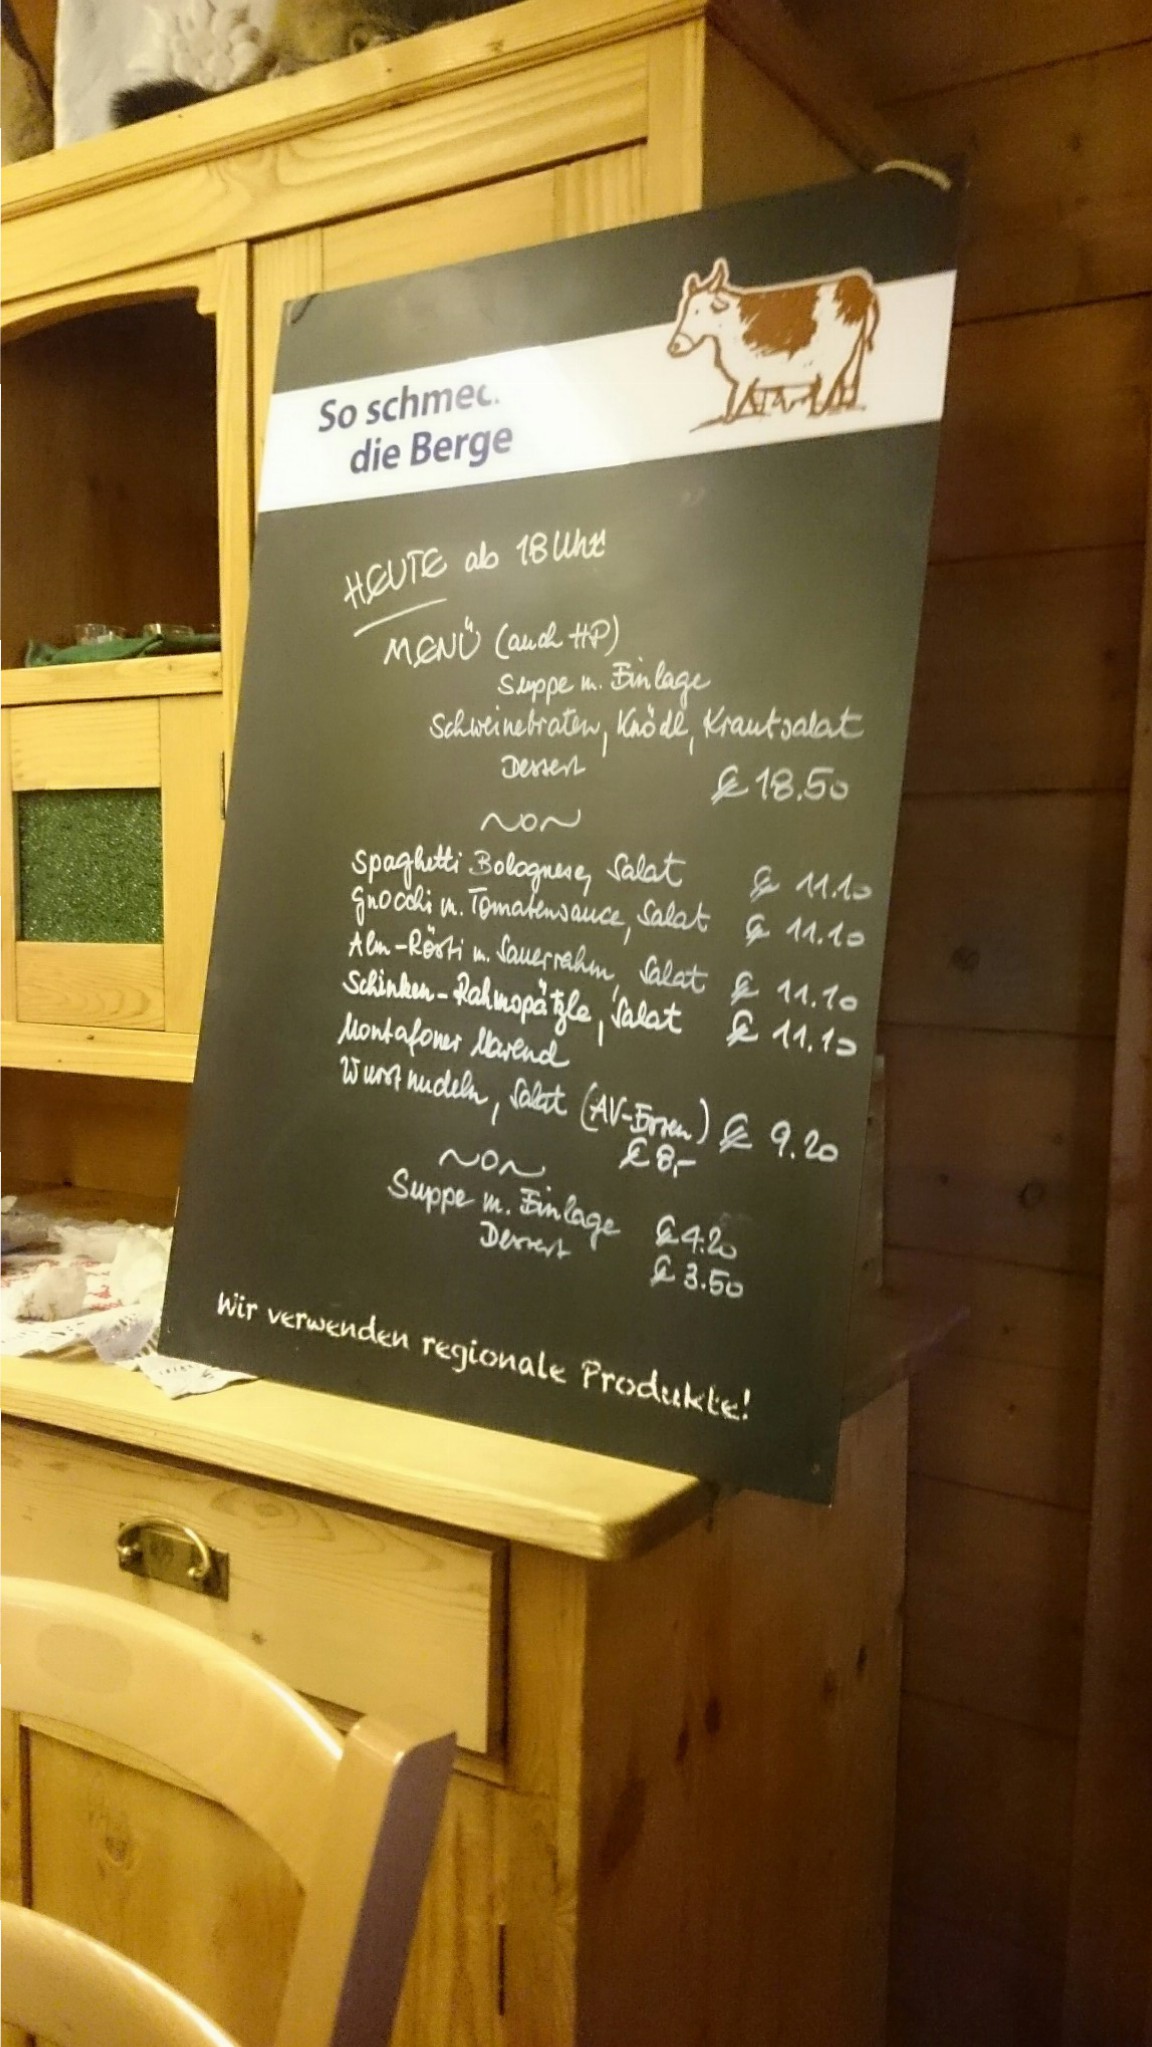 So schmec
die Berge
HEUTE ab 18 Uhr
MENÜ (auch HP)
Suppe m. Einlage
Schweinebraten, Knödl, Krautsalat
Dessert € 18.50
~o~
Spaghetti Bolognese, Salat € 11.10
Gnocchi m. Tomatensauce, Salat € 11.10
Alm-Rösti m. Sauerrahm, Salat € 11.10
Schinken-Rahmspätzle, Salat € 11.10
Montafoner Marend € 9.20
Wurstnudeln, Salat (AV-Essen) € 8,-
~o~
Suppe m. Einlage € 4.20
Dessert € 3.50
Wir verwenden regionale Produkte!